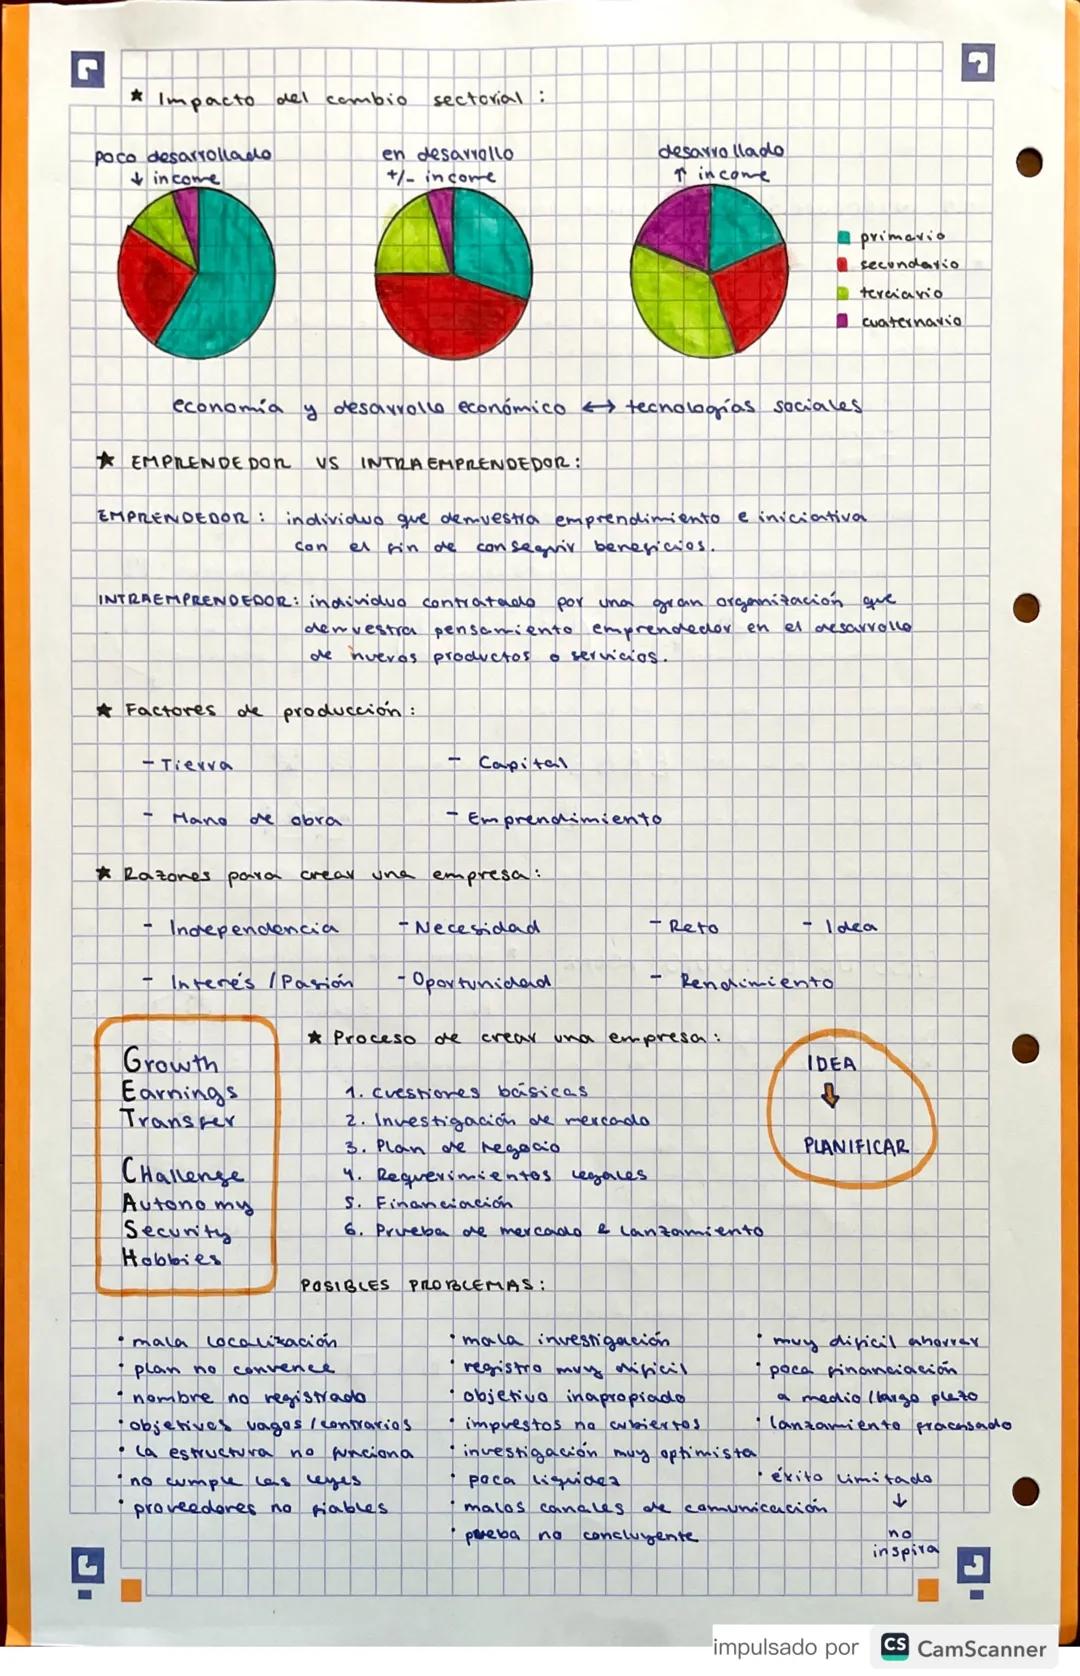 ★ Impacto del cambio sectorial :
poco desarrollado
↓ income
en desarrollo
+/- income
desarrollado
↑ income
primario
secundario
terciario
cuaternario
economía y desarrollo económico ↔ tecnologías sociales
★ EMPRENDEDOR VS INTRAEMPRENDEDOR:
EMPRENDEDOR : individuo que demuestra emprendimiento e iniciativa
con el fin de conseguir beneficios.
INTRAEMPRENDEDOR: individuo contratado por una gran organización que
demuestra pensamiento emprendedor en el desarrollo
de nuevos productos o servicios.
★ Factores de producción :
- Tierra
- Capital
- Mano de obra
- Emprendimiento
★ Razones para crear una empresa:
- Independencia - Necesidad - Reto - Idea
- Interés / Pasión - Oportunidad - Rendimiento
Growth
Earnings
Transfer
CHallenge
Autonomy
Security
Hobbies
★ Proceso de crear una empresa :
1. Cuestiones básicas
2. Investigación de mercado
3. Plan de negocio
4. Requerimientos legales
5. Financiación
6. Prueba de mercado & lanzamiento
IDEA
↓
PLANIFICAR
POSIBLES PROBLEMAS :
• mala localización
• plan no convence
• nombre no registrado
• objetivos vagos / contrarios
• la estructura no funciona
• no cumple las leyes
• proveedores no fiables
• mala investigación
• registro muy difícil
• objetivo inapropiado
• impuestos no cubiertos
• investigación muy optimista
• poca liquidez
• malos canales de comunicación
• prueba no concluyente
• muy difícil ahorrar
• poca financiación
a medio / largo plazo
• lanzamiento fracasado
• éxito limitado
↓
no
inspira
impulsado por CS CamScanner